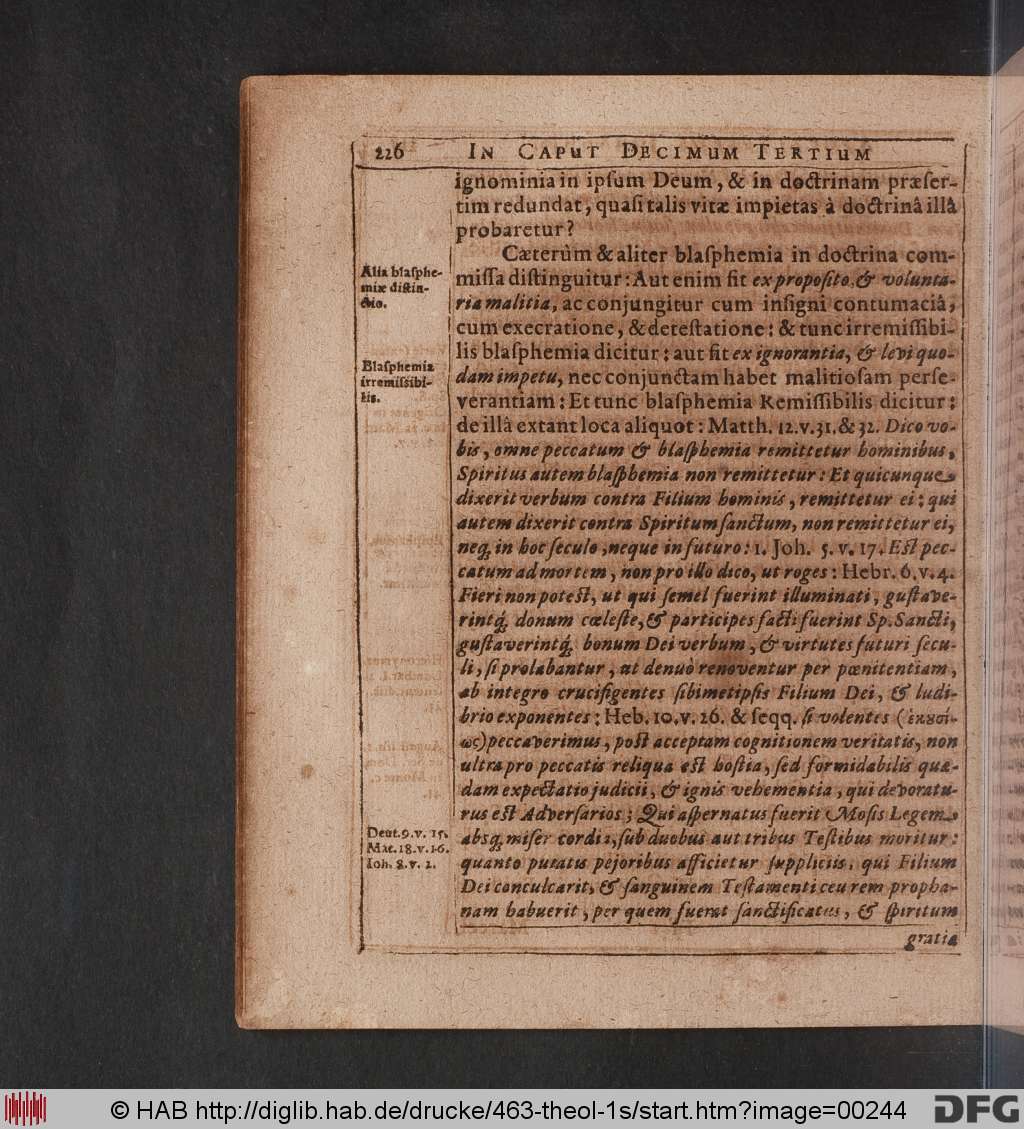 226 IN CAPUT DECIMUM TERTIUM
ignominia in ipſum Deum, & in doctrinam præſer-
tim redundat, quaſi talis vitæ impietas à doctrinâ illâ
probaretur?
Cæterùm & aliter blaſphemia in doctrina com-
miſſa diſtinguitur: Aut enim fit ex propoſito & volunta-
ria malitia, ac conjungitur cum inſigni contumaciâ,
cum execratione, & deteſtatione: & tunc irremiſſibi-
lis blaſphemia dicitur: aut fit ex ignorantia, & levi quo-
dam impetu, nec conjunctam habet malitioſam perſe-
verantiam: Et tunc blaſphemia Remiſſibilis dicitur:
de illâ extant loca aliquot: Matth. 12. v. 31. & 32. Dico vo-
bis, omne peccatum & blaſphemia remittetur hominibus,
Spiritus autem blaſphemia non remittetur: Et quicunque
dixerit verbum contra Filium hominis, remittetur ei: qui
autem dixerit contra Spiritum ſanctum, non remittetur ei,
neq; in hoc ſeculo, neque in futuro: 1. Joh. 5. v. 17. Eſt pec-
catum ad mortem, non pro illo dico, ut roges: Hebr. 6. v. 4.
Fieri non poteſt, ut qui ſemel fuerint illuminati, guſtave-
rintq́; donum cæleſte, & participes facti fuerint Sp. Sancti,
guſtaverintq́; bonum Dei verbum, & virtutes futuri ſecu-
li, ſi prolabantur, ut denuò renoventur per pœnitentiam,
ab integro crucifigentes ſibimetipſis Filium Dei, & ludi-
brio exponentes: Heb. 10. v. 26. & ſeqq. ſi volentes (ἑκουσί-
ως) peccaverimus, poſt acceptam cognitionem veritatis, non
ultra pro peccatis reliqua eſt hoſtia, ſed formidabilis quæ-
dam expectatio judicii, & ignis vehementia, qui devoratu-
rus eſt Adverſarios; Qui aſpernatus fuerit Moſis Legem
absq; miſericordia, ſub duobus aut tribus Teſtibus moritur:
quanto putatis pejoribus afficietur ſuppliciis, qui Filium
Dei conculcarit, & ſanguinem Teſtamenti ceu rem propha-
nam habuerit, per quem fuerat ſanctificatus, & ſpiritum
gratiæ
Alia blaſphe-
miæ diſtin-
ctio.
Blaſphemia
irremiſsibi-
lis.
Deut. 9. v. 15.
Mat. 18. v. 16.
Ioh. 8. v. 2.
© HAB http://diglib.hab.de/drucke/463-theol-1s/start.htm?image=00244
DFG